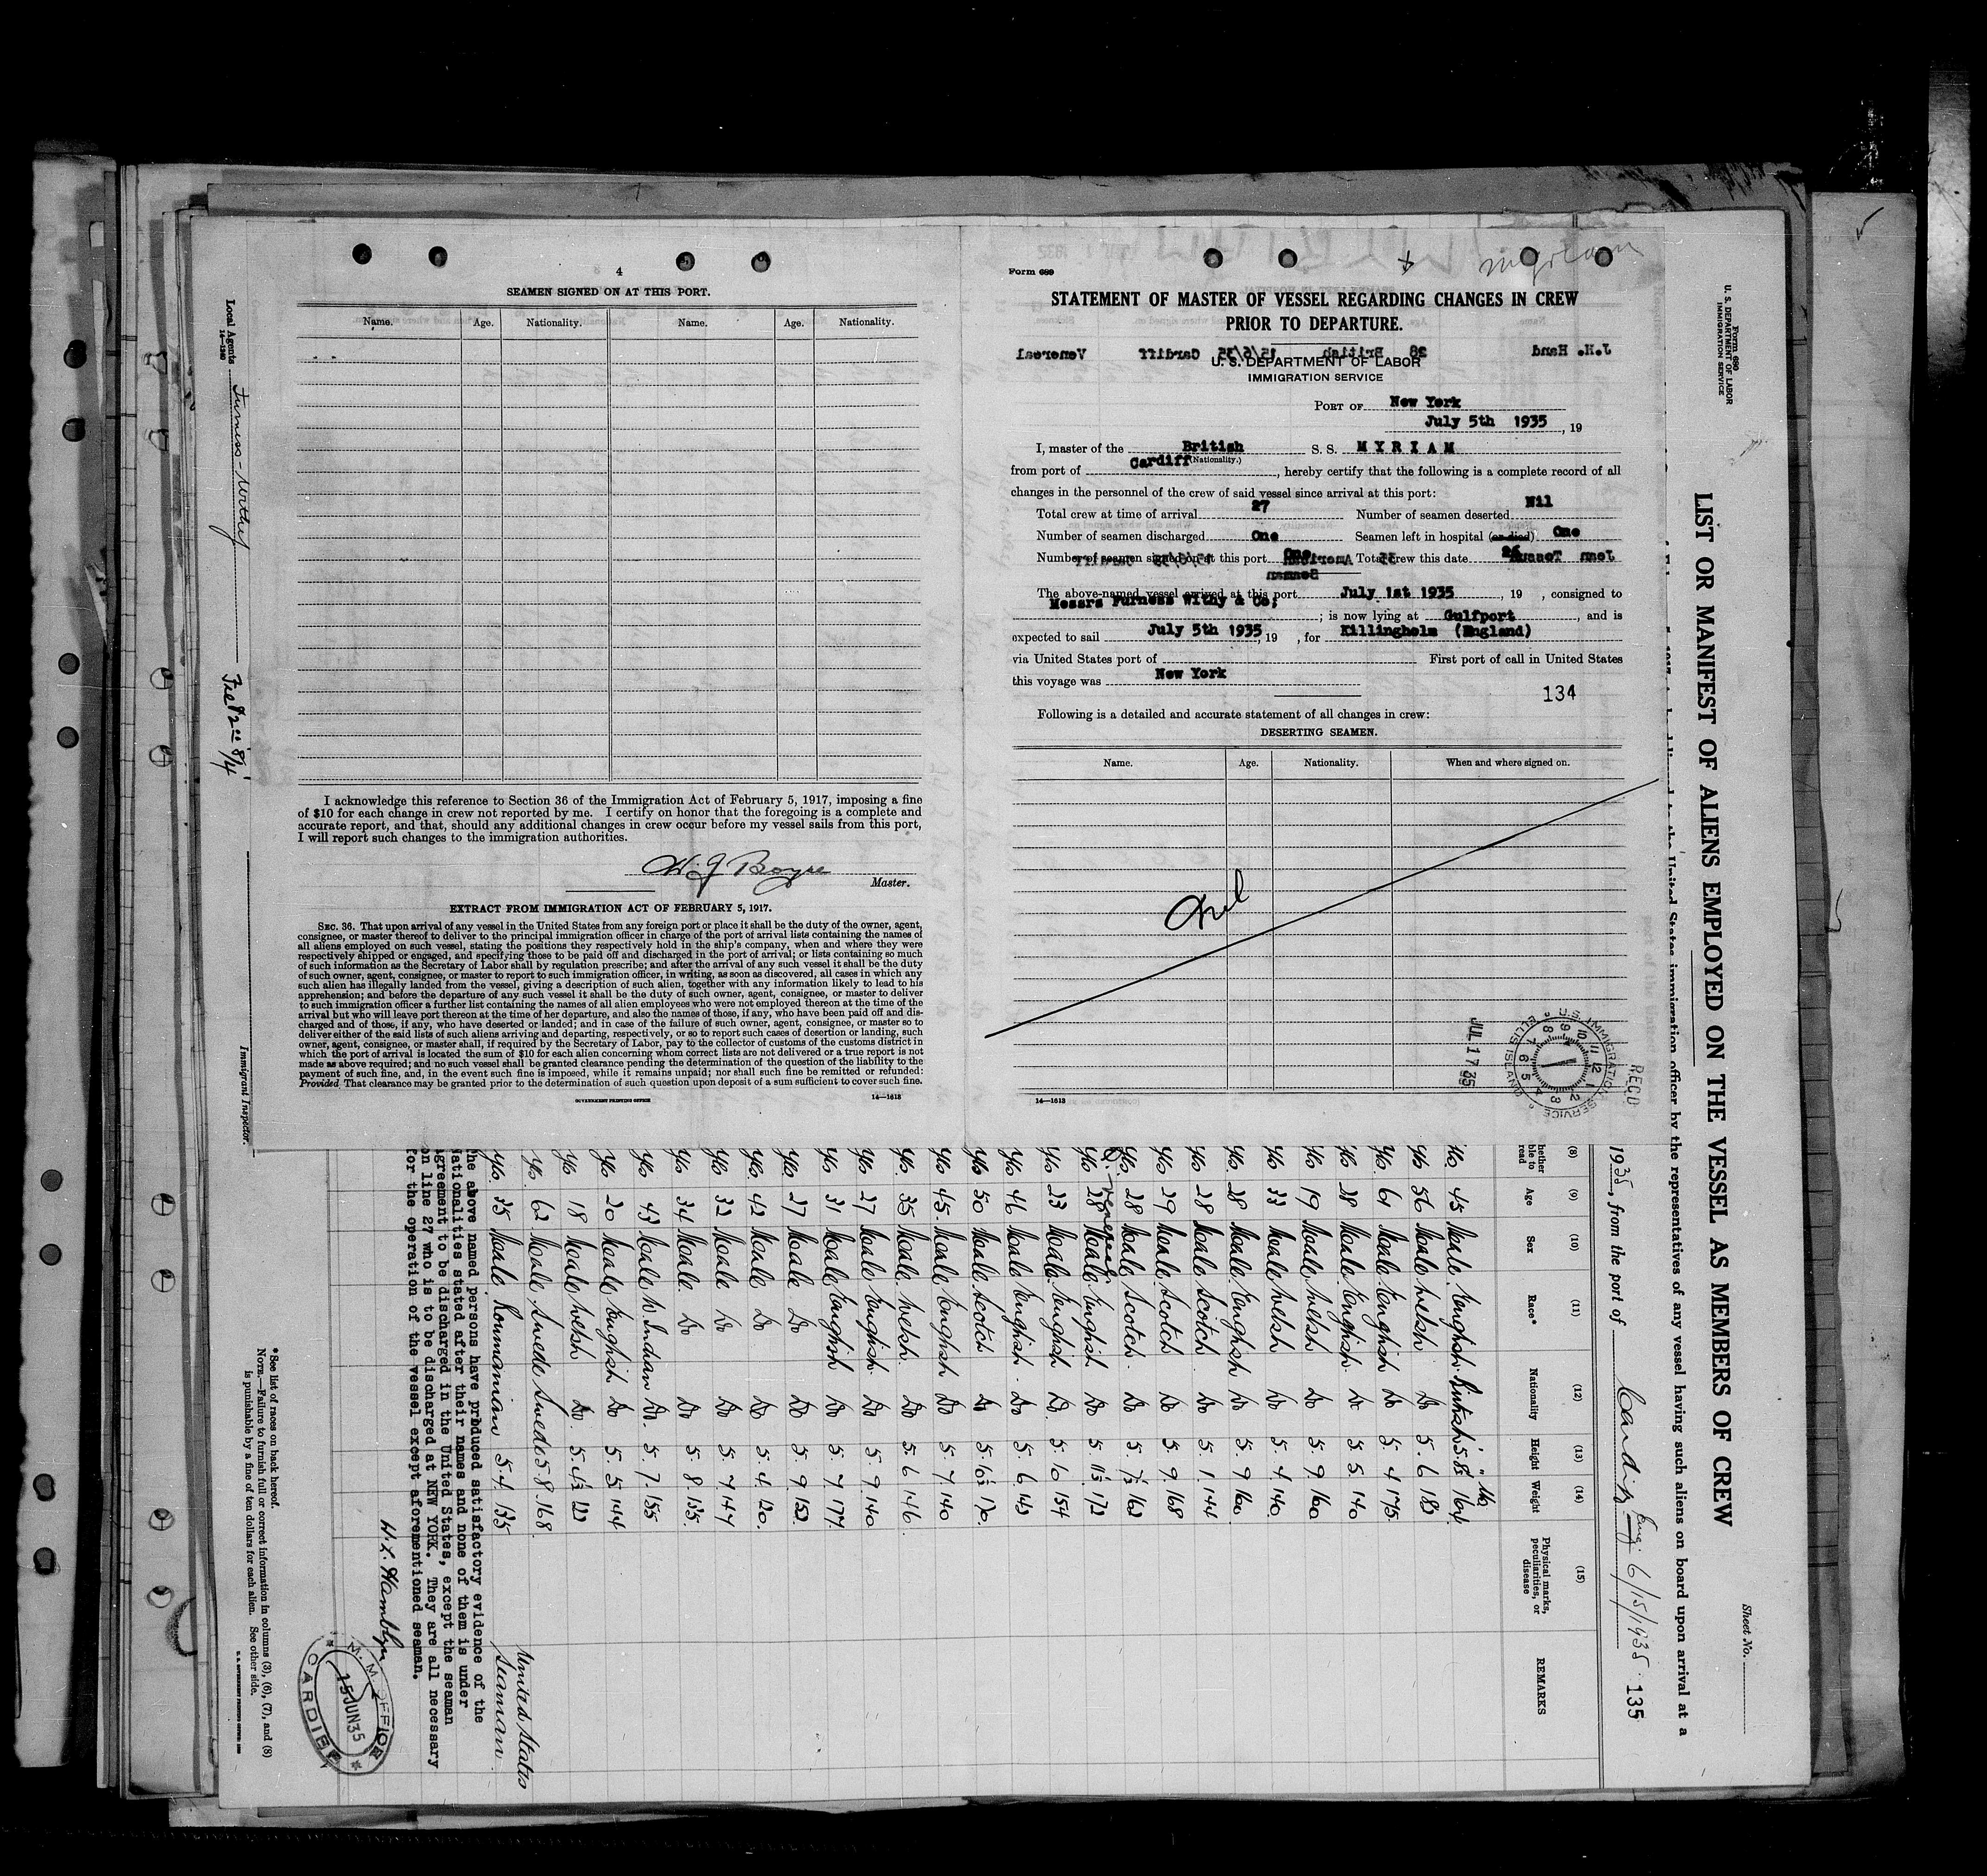 4
SEAMEN SIGNED ON AT THIS PORT.
Name. Age. Nationality. Name. Age. Nationality.
I acknowledge this reference to Section 36 of the Immigration Act of February 5, 1917, imposing a fine
of $10 for each change in crew not reported by me. I certify on honor that the foregoing is a complete and
accurate report, and that, should any additional changes in crew occur before my vessel sails from this port,
I will report such changes to the immigration authorities.
Master.
EXTRACT FROM IMMIGRATION ACT OF FEBRUARY 5, 1917.
SEC. 36. That upon arrival of any vessel in the United States from any foreign port or place it shall be the duty of the owner, agent,
consignee, or master thereof to deliver to the principal immigration officer in charge of the port of arrival lists containing the names of
all aliens employed on such vessel, stating the positions they respectively hold in the ship's company, when and where they were
respectively shipped or engaged, and specifying those to be paid off and discharged in the port of arrival; or lists containing so much
of such information as the Secretary of Labor shall by regulation prescribe; and after the arrival of any such vessel it shall be the duty
of such owner, agent, consignee, or master to report to such immigration officer, in writing, as soon as discovered, all cases in which any
such alien has illegally landed from the vessel, giving a description of such alien, together with any information likely to lead to his
apprehension; and before the departure of any such vessel it shall be the duty of such owner, agent, consignee, or master to deliver
to such immigration officer a further list containing the names of all alien employees who were not employed thereon at the time of the
arrival but who will leave port thereon at the time of her departure, and also the names of those, if any, who have been paid off and dis-
charged and of those, if any, who have deserted or landed; and in case of the failure of such owner, agent, consignee, or master so to
deliver either of the said lists of such aliens arriving and departing, respectively, or so to report such cases of desertion or landing, such
owner, agent, consignee, or master shall, if required by the Secretary of Labor, pay to the collector of customs of the customs district in
which the port of arrival is located the sum of $10 for each alien concerning whom correct lists are not delivered or a true report is not
made as above required; and no such vessel shall be granted clearance pending the determination of the question of the liability to the
payment of such fine, and, in the event such fine is imposed, while it remains unpaid; nor shall such fine be remitted or refunded:
Provided That clearance may be granted prior to the determination of such question upon deposit of a sum sufficient to cover such fine.
GOVERNMENT PRINTING OFFICE 14—1613
Myriam
Form 689
STATEMENT OF MASTER OF VESSEL REGARDING CHANGES IN CREW
PRIOR TO DEPARTURE.
J.H. Hand 28 British 15/6/35 Cardiff Venereal
U. S. DEPARTMENT OF LABOR
IMMIGRATION SERVICE
PORT OF New York
July 5th 1935, 19
I, master of the British S. S. MYRIAM
(Nationality.)
from port of Cardiff, hereby certify that the following is a complete record of all
changes in the personnel of the crew of said vessel since arrival at this port:
Total crew at time of arrival 27 Number of seamen deserted Nil
Number of seamen discharged One Seamen left in hospital (or died) One
Number of seamen signed on at this port One Total crew this date 26
The above-named vessel arrived at this port July 1st 1935, 19 , consigned to
Messrs Furness Withy & Co; ; is now lying at Gulfport, and is
expected to sail July 5th 1935, 19 , for Killingholm (England)
via United States port of First port of call in United States
this voyage was New York
134
Following is a detailed and accurate statement of all changes in crew:
DESERTING SEAMEN.
Name. Age. Nationality. When and where signed on.
Nil
14—1613
JUL 17 35
U.S. IMMIGRATION SERVICE ELLIS ISLAND
REC'D
Form 689
U. S. DEPARTMENT OF LABOR
IMMIGRATION SERVICE
Sheet No.
LIST OR MANIFEST OF ALIENS EMPLOYED ON THE VESSEL AS MEMBERS OF CREW
United States immigration officer by the representatives of any vessel having such aliens on board upon arrival at a
1935, from the port of Cardiff Eng. 6/15/1935. 135
(8) (9) (10) (11) (12) (13) (14) (15)
Age Sex Race* Nationality Height Weight Physical marks, peculiarities, or disease REMARKS
45 Male English British 5.8½ 164
56 Male Welsh Do 5.6 182
61 Male English Do 5.4 175
28 Male English Do 5.5 140
19 Male Welsh Do 5.9 160
33 Male Welsh Do 5.4 140
28 Male English Do 5.9 160
28 Male Scotch Do 5.1 144
29 Male Scotch Do 5.9 168
28 Male Scotch Do 5.7½ 162
28 Male English Do 5.11½ 172
venereal
23 Male English Do 5.10 154
46 Male English Do 5.6 142
50 Male Scotch Do 5.6½ 170
45 Male English Do 5.7 140
35 Male Welsh Do 5.6 146
27 Male English Do 5.9 140
31 Male English Do 5.7 177
27 Male Do Do 5.9 152
42 Male Do Do 5.4 120
32 Male Do Do 5.7 147
34 Male Do Do 5.8 135
43 Male W Indian Do 5.7 155
20 Male English Do 5.5 144
18 Male Welsh Do 5.4½ 122
62 Male Swede Swede 5.8 168
35 Male Roumanian 5.4 135 United States Seaman
The above named persons have produced satisfactory evidence of the
Nationalities stated after their names and none of them is under
agreement to be discharged in the United States, except the seaman
on line 27 who is to be discharged at NEW YORK. They are all necessary
for the operation of the vessel except aforementioned seaman.
M. M. OFFICE
15 JUN 35
CARDIFF
*See list of races on back hereof.
NOTE.—Failure to furnish full or correct information in columns (3), (6), (7), and (8)
is punishable by a fine of ten dollars for each alien. See other side.
Local Agents Furness-Withy
14—1240
Immigrant Inspector.